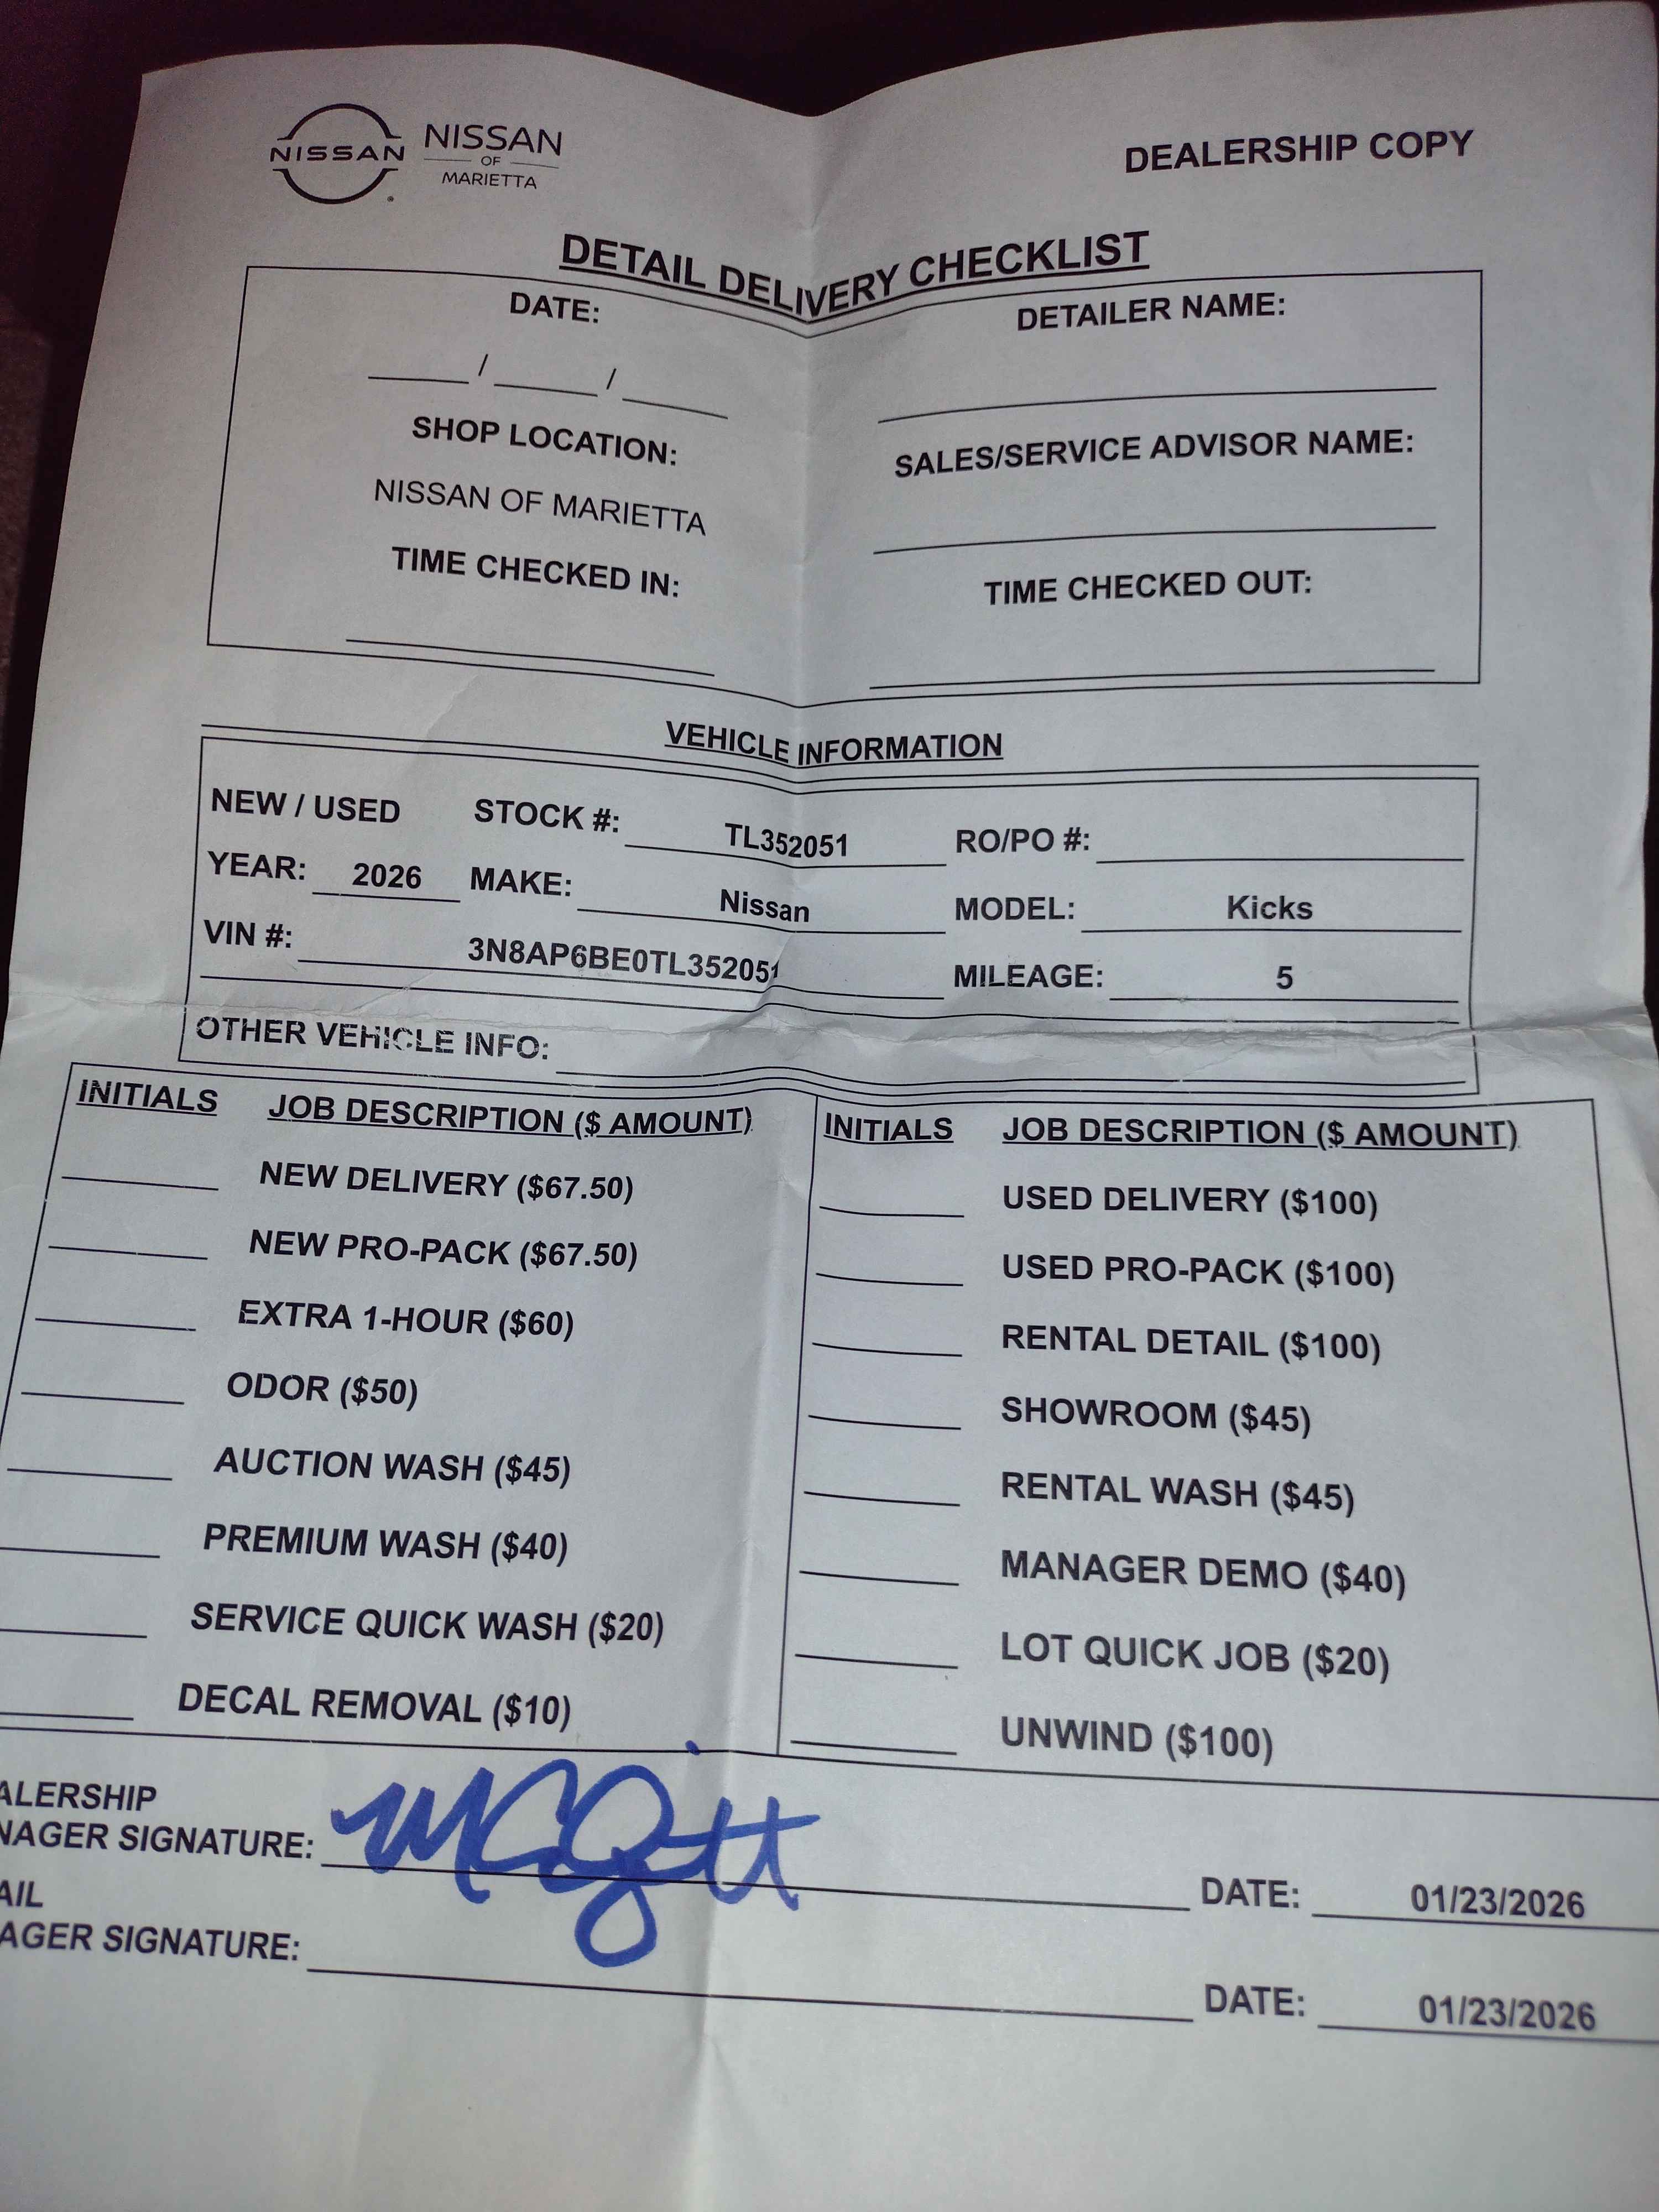 NISSAN NISSAN OF MARIETTA
DEALERSHIP COPY
DETAIL DELIVERY CHECKLIST
DATE: DETAILER NAME:
____/____/____
SHOP LOCATION: SALES/SERVICE ADVISOR NAME:
NISSAN OF MARIETTA
TIME CHECKED IN: TIME CHECKED OUT:
VEHICLE INFORMATION
NEW / USED STOCK #: TL352051 RO/PO #:
YEAR: 2026 MAKE: Nissan MODEL: Kicks
VIN #: 3N8AP6BE0TL352051 MILEAGE: 5
OTHER VEHICLE INFO:
INITIALS JOB DESCRIPTION ($ AMOUNT) INITIALS JOB DESCRIPTION ($ AMOUNT)
NEW DELIVERY ($67.50) USED DELIVERY ($100)
NEW PRO-PACK ($67.50) USED PRO-PACK ($100)
EXTRA 1-HOUR ($60) RENTAL DETAIL ($100)
ODOR ($50) SHOWROOM ($45)
AUCTION WASH ($45) RENTAL WASH ($45)
PREMIUM WASH ($40) MANAGER DEMO ($40)
SERVICE QUICK WASH ($20) LOT QUICK JOB ($20)
DECAL REMOVAL ($10) UNWIND ($100)
ALERSHIP
NAGER SIGNATURE: DATE: 01/23/2026
AIL
AGER SIGNATURE: DATE: 01/23/2026